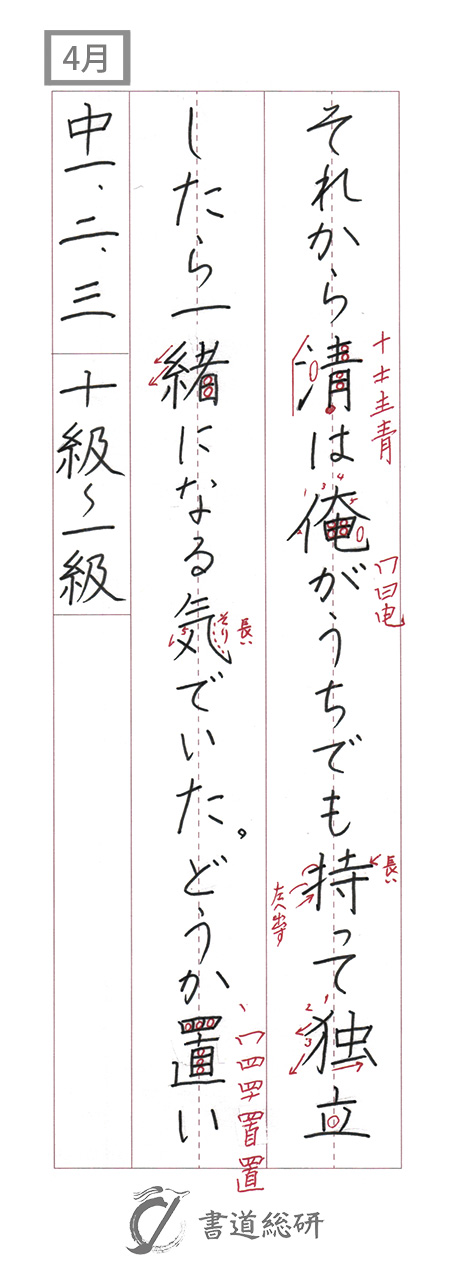 4月
それから清は俺がうちでも持って独立
十 キ 主 青
冂 日 电
長い
左へ出す
したら一緒になる気でいた。どうか置い
長い
そり
丶 冖 罒 罒 置 置
中一、二、三 十級〜一級
書道総研